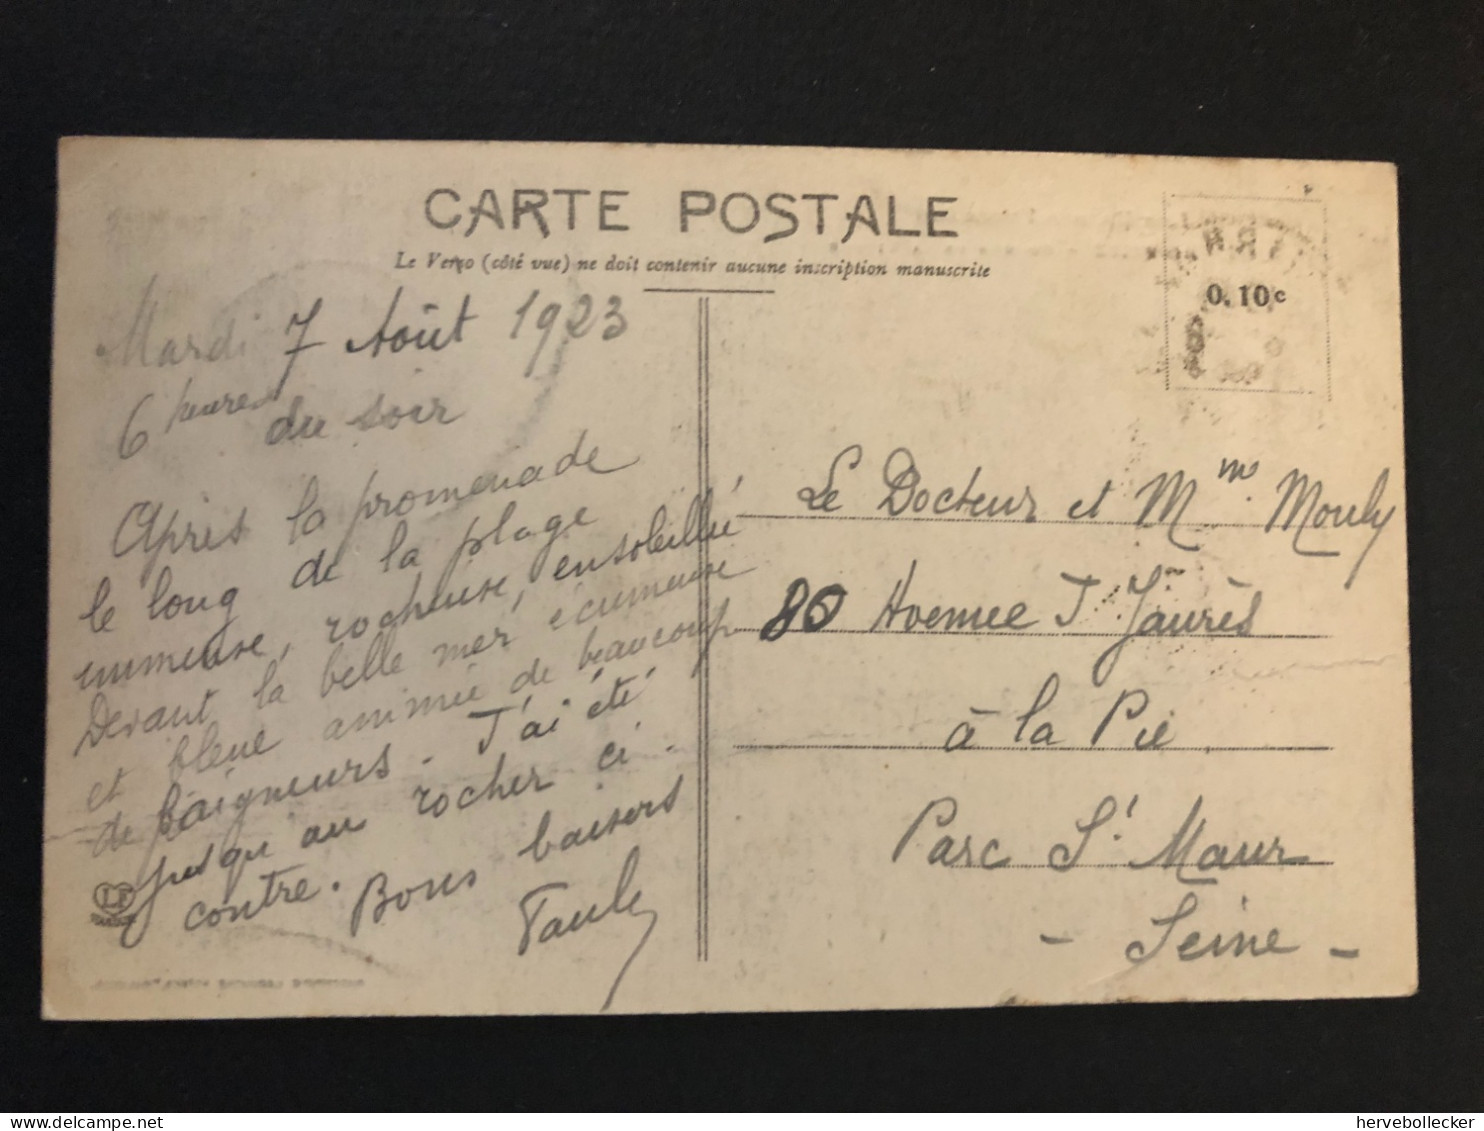 CARTE POSTALE
Le Verso (côté vue) ne doit contenir aucune inscription manuscrite
0.10c
Mardi 7 Août 1923
6 heures
du soir
Après la promenade
le long de la plage
immense, rocheuse, ensoleillé
Devant la belle mer écumeuse
et bleue animée de beaucoup
de baigneurs. J'ai été
jusqu'au rocher ci.
contre. Bons baisers
Pauly
LF
Le Docteur et Mme Mouly
80 Avenue J Jaurès
à la Pie
Parc St Maur
- Seine -
www.delcampe.net
hervebollecker